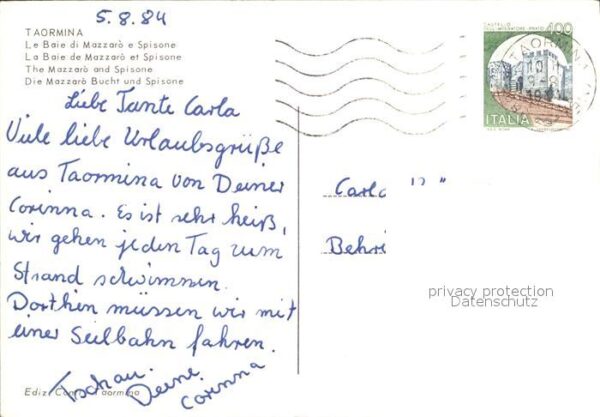 5.8.84
TAORMINA
Le Baie di Mazzarò e Spisone
La Baie de Mazzarò et Spisone
The Mazzarò and Spisone
Die Mazzarò Bucht und Spisone
Liebe Tante Carla
Viele liebe Urlaubsgrüße
aus Taormina von Deiner
Corinna. Es ist sehr heiß,
wir gehen jeden Tag zum
Strand schwimmen.
Dorthin müssen wir mit
einer Seilbahn fahren.
Tschau
Deine
Corinna
CASTELLO
400
TAORMINA
ITALIA
Carla
Behri
privacy protection
Datenschutz
Taormina